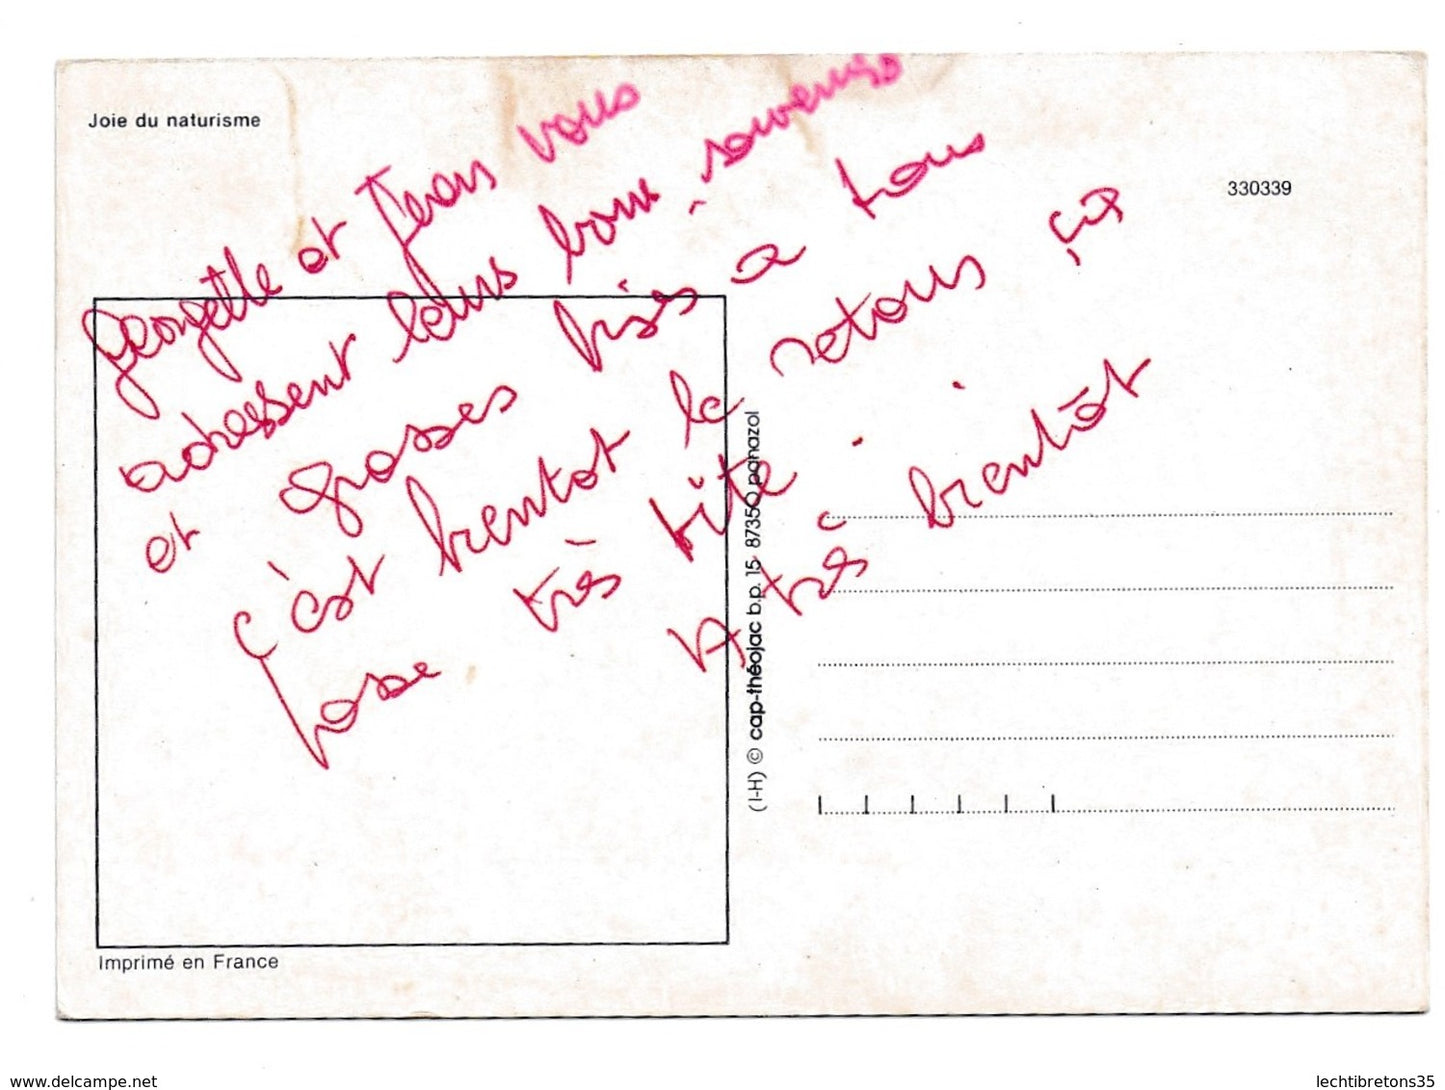 Joie du naturisme
330339
Georgette et Jean vous
adressent leurs bons souvenirs
et grosses bises a tous
c'est bientot le retour, ça
passe très vite.
A très bientôt
(I-H) © cap-théojac b.p. 15 87350 panazol
Imprimé en France
www.delcampe.net
lechtibretons35